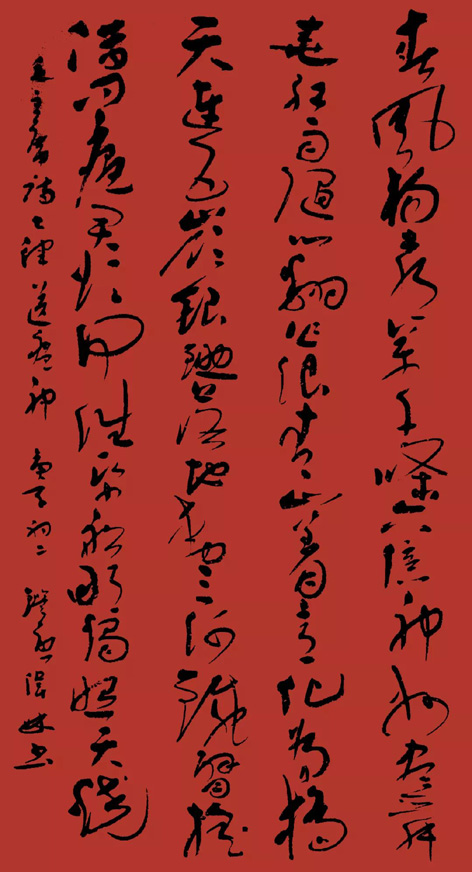 春风杨柳万千條六億神州尽舜
尧红雨随心翻作浪青山着意化为桥
天连五岭银锄落地动三河铁臂摇
借问瘟君欲何往纸船明烛照天烧
毛主席诗七律送瘟神 庚子初二 书